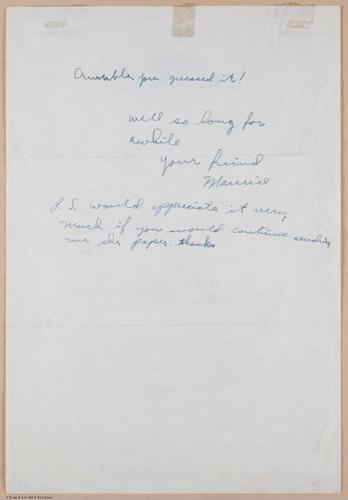 you guessed it!
well so long for
awhile
Your friend
Maurice
P.S. would appreciate it very
much if you would continue sending
me the paper. thanks